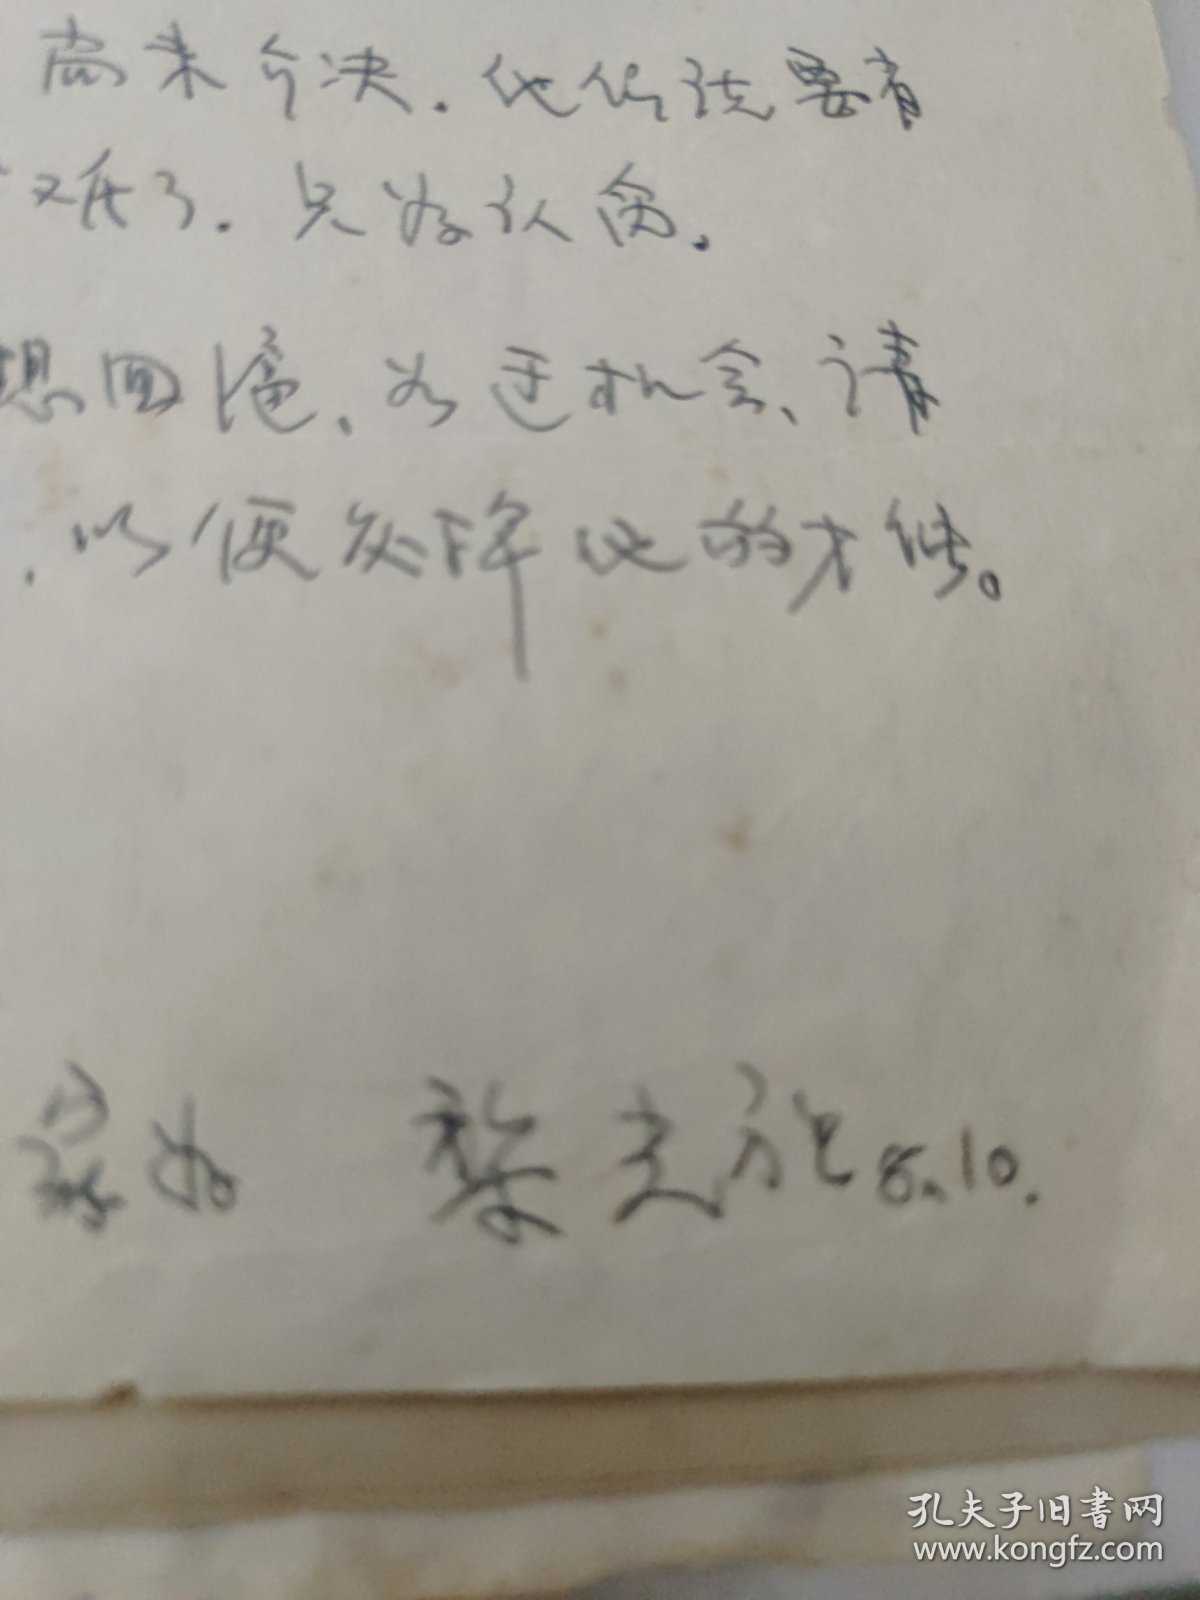 尚未解决．他们说要有
难了．只好认命．
想回沪、如遇机会、请
．以便发挥他的才能。
8.10.
孔夫子旧书网
www.kongfz.com